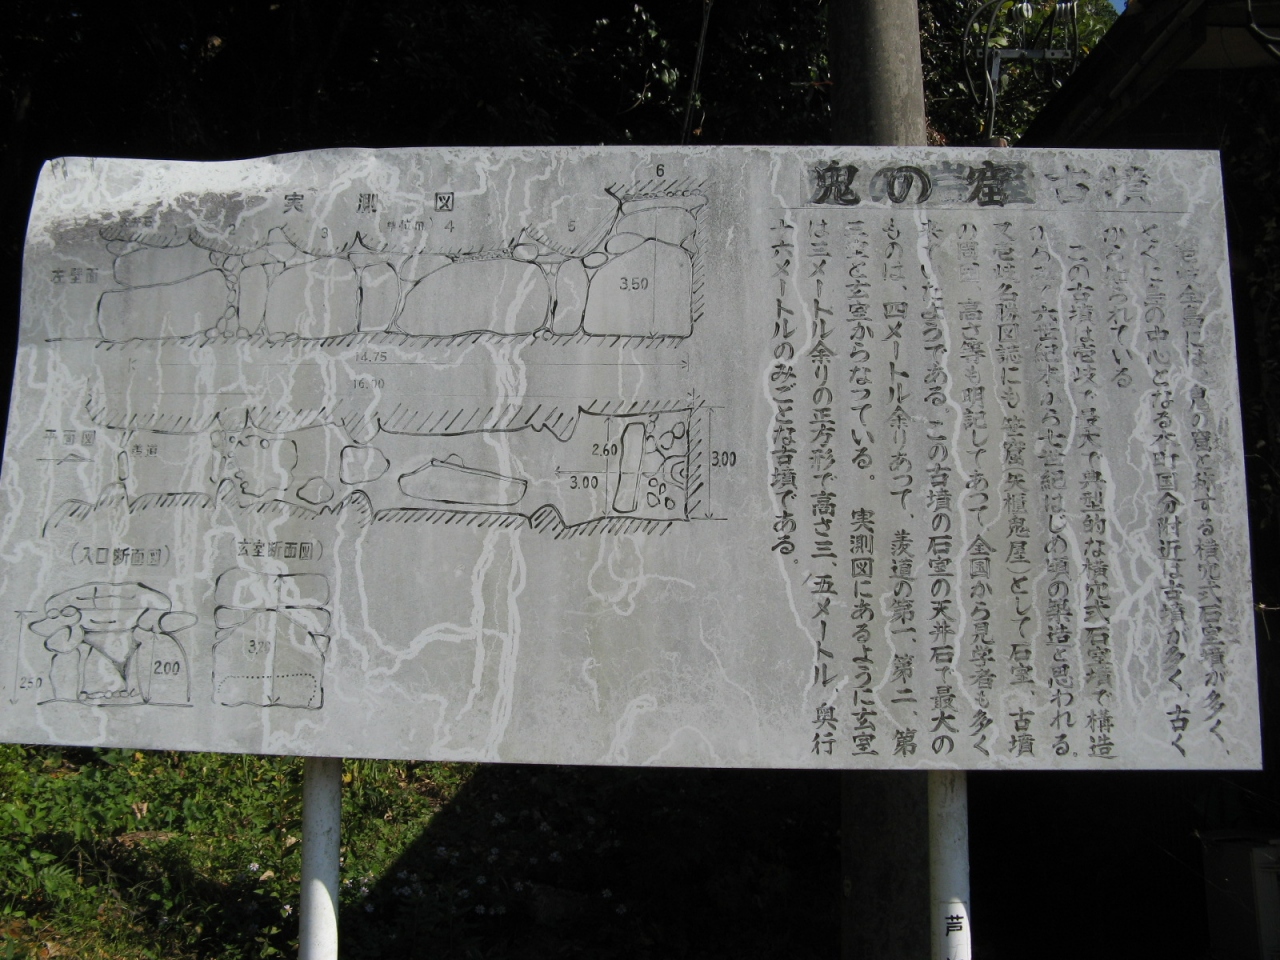 鬼の窟古墳
全島には、鬼の窟と称する横穴式石室墳が多く、
とくに島の中心となる本町国分附近は古墳が多く、古く
からしられている
この古墳は壱岐では典型的な横穴式石室墳で構造
六世紀末から七世紀はじめ頃の築造と思われる。
又壱岐名勝図誌にも窟(矢櫃鬼屋)として石室、古墳
の周囲、高さ等も明記してあつて全国から見学者も多く
来ていたようである。この古墳の石室の天井石で最大の
ものは、四メートル余りあつて、羨道の第一、第二、第
三室と玄室からなつている。 実測図にあるように玄室
は三メートル余りの正方形で高さ三、五メートル、奥行
十六メートルのみごとな古墳である。
実測図
3
4
5
6
左壁面
3.50
14.75
16.00
平面図
羨道
2.60
3.00
3.00
(入口断面図)
(玄室断面図)
2.50
2.00
3.20
芦